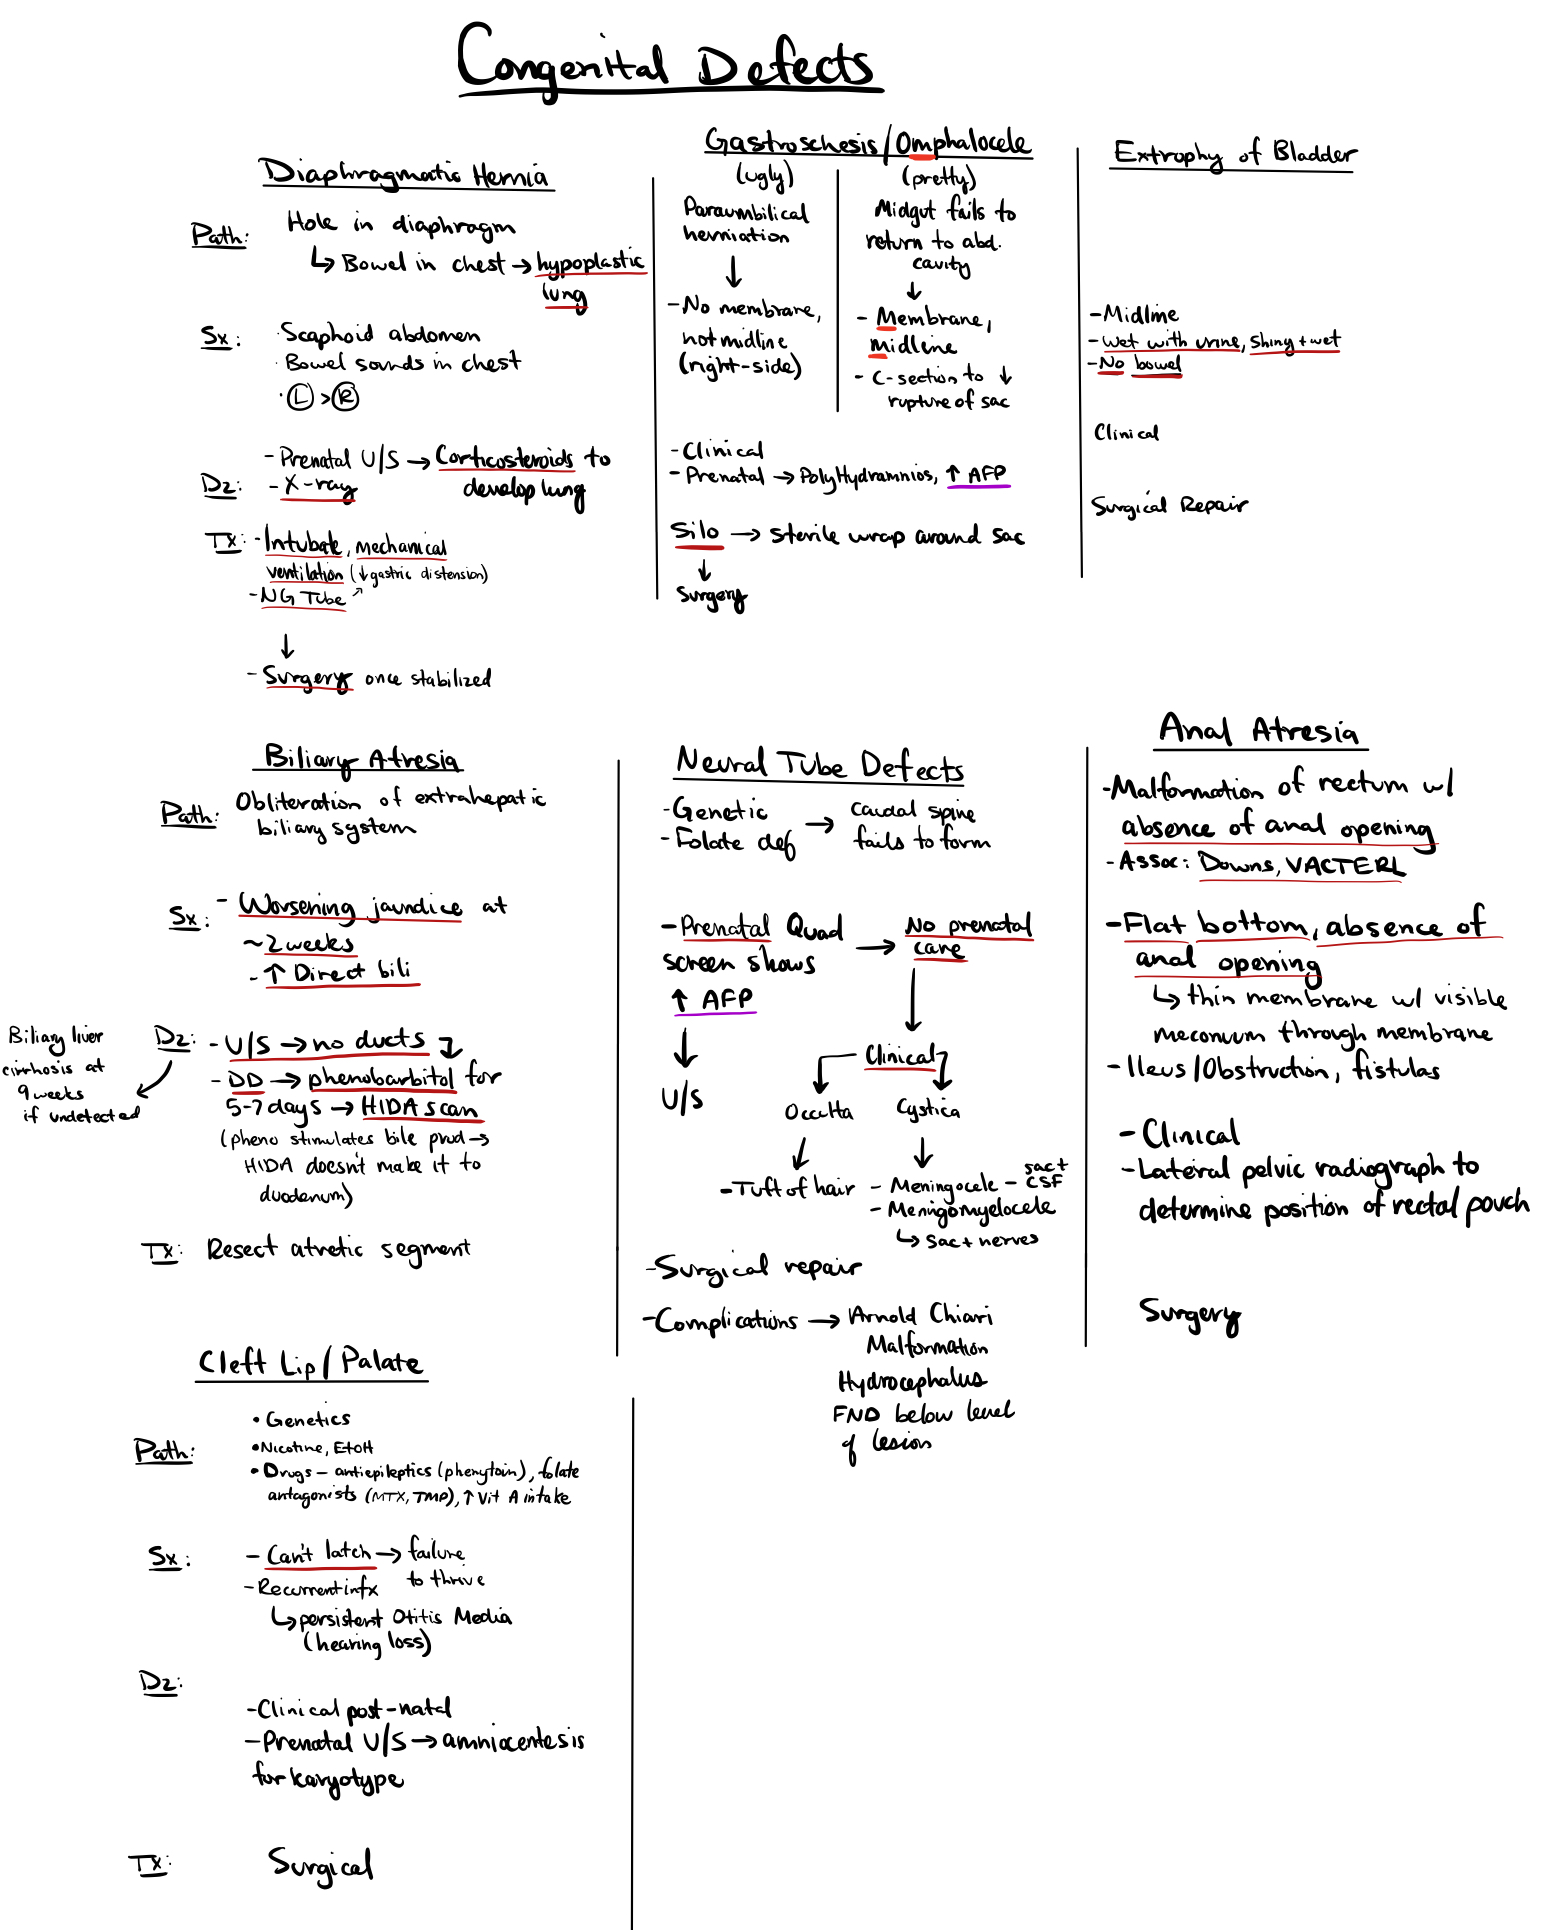 Congenital Defects
Diaphragmatic Hernia
Path:
Hole in diaphragm
↳ Bowel in chest → hypoplastic
lung
Sx:
· Scaphoid abdomen
· Bowel sounds in chest
· Ⓛ > Ⓡ
Dz:
- Prenatal U/S → Corticosteroids to
develop lung
- X-ray
Tx:
- Intubate, mechanical
ventilation (↓gastric distension)
- NG Tube ↗
↓
- Surgery once stabilized
Gastroschesis/Omphalocele
(ugly)
Paraumbilical
herniation
↓
- No membrane,
not midline
(right-side)
(pretty)
Midgut fails to
return to abd.
cavity
↓
- Membrane,
midline
- C-section to ↓
rupture of sac
- Clinical
- Prenatal → PolyHydramnios, ↑ AFP
Silo → sterile wrap around sac
↓
Surgery
Extrophy of Bladder
- Midline
- Wet with urine, Shiny + wet
- No bowel
Clinical
Surgical Repair
Biliary Atresia
Path:
Obliteration of extrahepatic
biliary system
Sx:
- Worsening jaundice at
~2 weeks
- ↑ Direct bili
Dz:
- U/S → no ducts
- DD → phenobarbitol for
5-7 days → HIDA scan
(pheno stimulates bile prod →
HIDA doesn't make it to
duodenum)
Biliary liver
cirrhosis at
9 weeks
if undetected
Tx: Resect atretic segment
Neural Tube Defects
- Genetic
- Folate def
→ Caudal spine
fails to form
- Prenatal Quad
screen shows
↑ AFP
↓
U/S
→ No prenatal
care
↓
Clinical
Occulta
↓
- Tuft of hair
Cystica
↓
- Meningocele - sac +
CSF
- Meningomyelocele
↳ Sac + nerves
- Surgical repair
- Complications → Arnold Chiari
Malformation
Hydrocephalus
FND below level
of lesion
Anal Atresia
- Malformation of rectum w/
absence of anal opening
- Assoc: Downs, VACTERL
- Flat bottom, absence of
anal opening
↳ thin membrane w/ visible
meconium through membrane
- Ileus/Obstruction, fistulas
- Clinical
- Lateral pelvic radiograph to
determine position of rectal pouch
Surgery
Cleft Lip/Palate
Path:
• Genetics
• Nicotine, EtOH
• Drugs - antiepileptics (phenytoin), folate
antagonists (MTX, TMP), ↑ Vit A intake
Sx:
- Can't latch → failure
to thrive
- Recurrent infx
↳ persistent Otitis Media
(hearing loss)
Dz:
- Clinical post-natal
- Prenatal U/S → amniocentesis
for karyotype
Tx:
Surgical